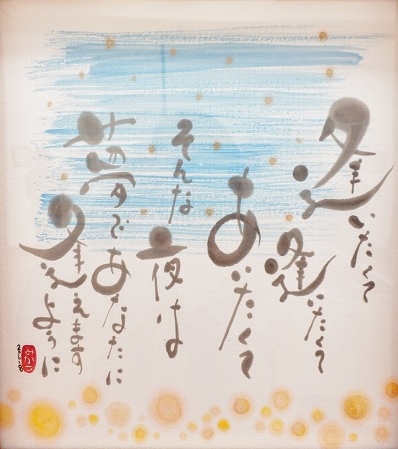 逢いたくて
逢いたくて
あいたくて
そんな
夜は
夢であなたに
逢えますように